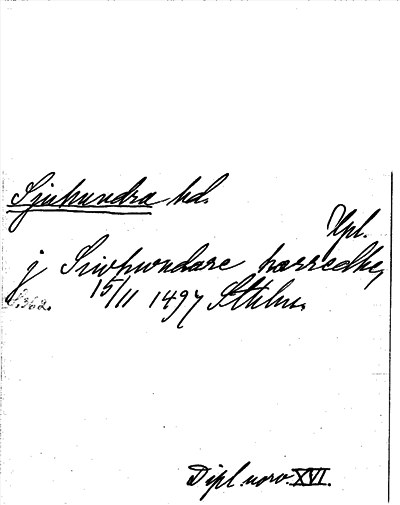 Sjuhundra hd.
Upl.
j Siwhundare hærredhe,
15/11 1497 Sthlm.
S. 362.
Dipl. norv. XVI.